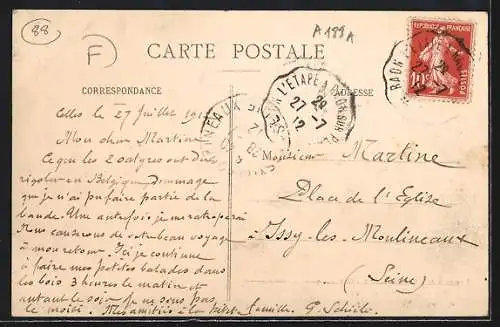 88
F
A 199 A
CARTE POSTALE
CORRESPONDANCE
ADRESSE
REPUBLIQUE FRANÇAISE
10c
POSTES
RAON L'ETAPE A RAON SUR P
27 28-7
12
Celles le 27 Juillet 191
Mon cher Martine
Ce que les 2 ont dû
rigoler en Belgique. Dommage
que je n'ai pu faire partie de la
bande. Une autre fois je me rattraperai
Nous causerons de votre beau voyage
à mon retour. Ici je continue
à faire mes petites balades dans
les bois 3 heures le matin et
autant le soir. Je ne sens pas
le moisi. Mes amitiés à la famille G. Schiele
Monsieur Martine
Place de l'Eglise
à Issy-les-Moulineaux
(Seine)